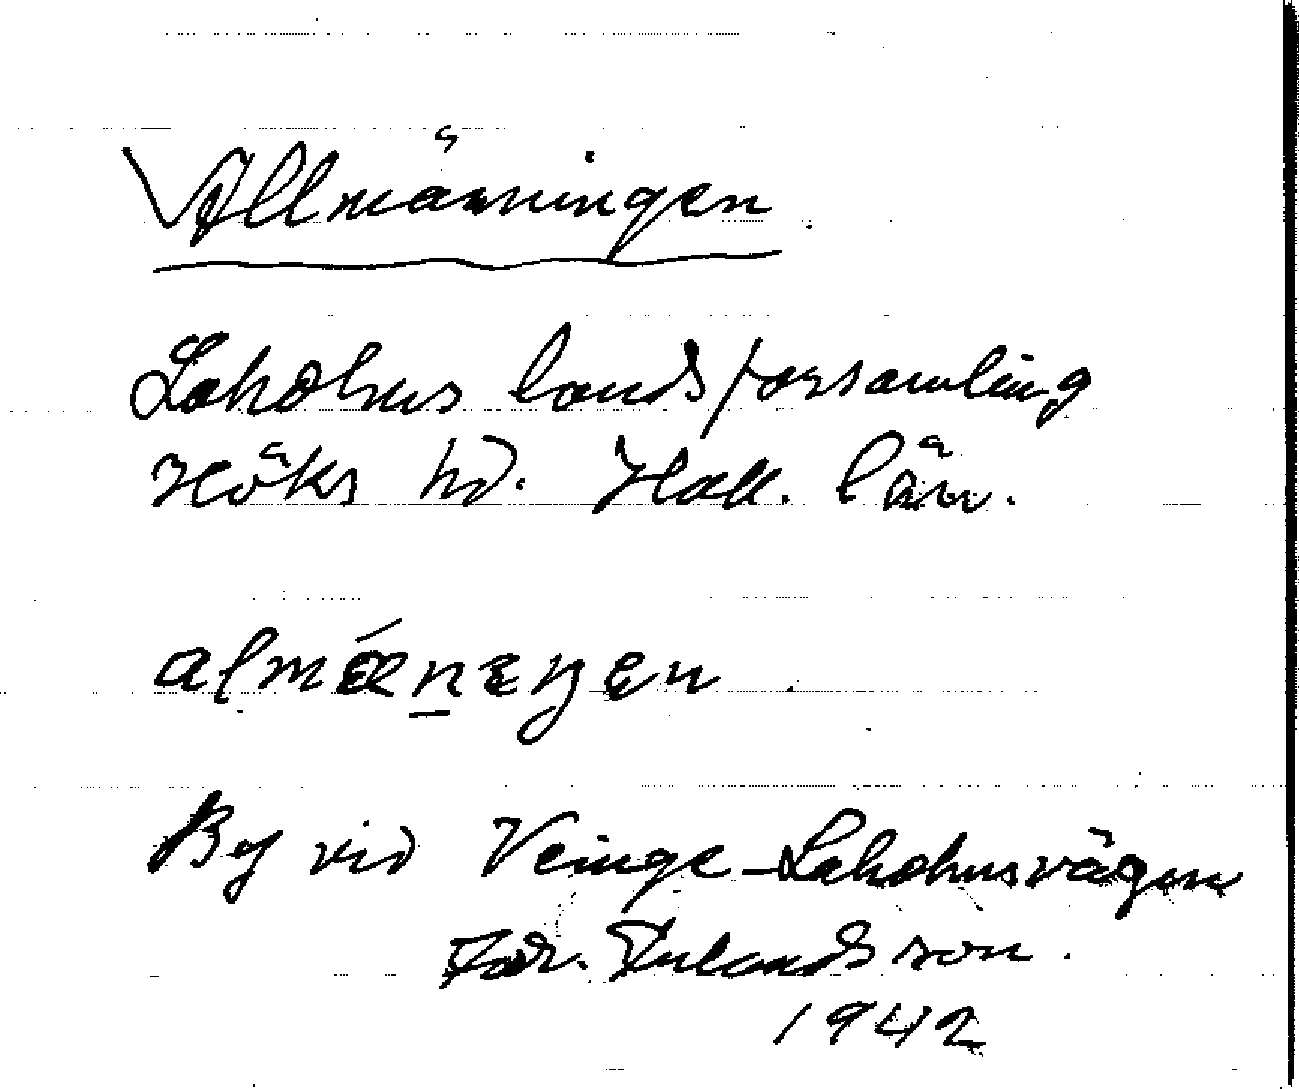 Allmänningen
Laholms landsförsamling
Höks hd. Hall. län.
almǽneŋen
By vid Veinge-Laholmsvägen
1942